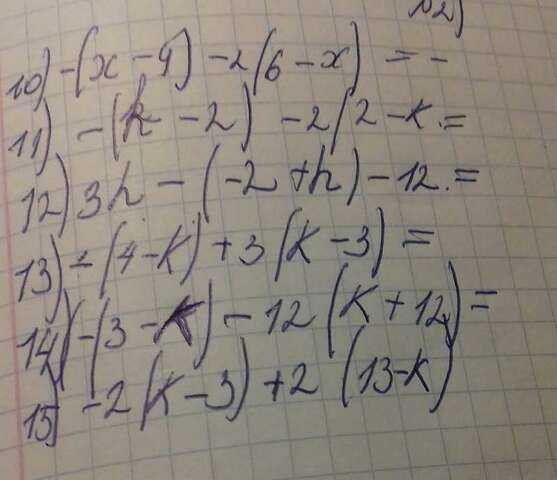 №2)
10) -(x - 9) - 2(6 - x) = -
11) -(k - 2) - 2(2 - k =
12) 3h - (-2 + h) - 12. =
13) -(4 - k) + 3(k - 3) =
14) -(3 - k) - 12(k + 12) =
15) -2(k - 3) + 2(13 - k)